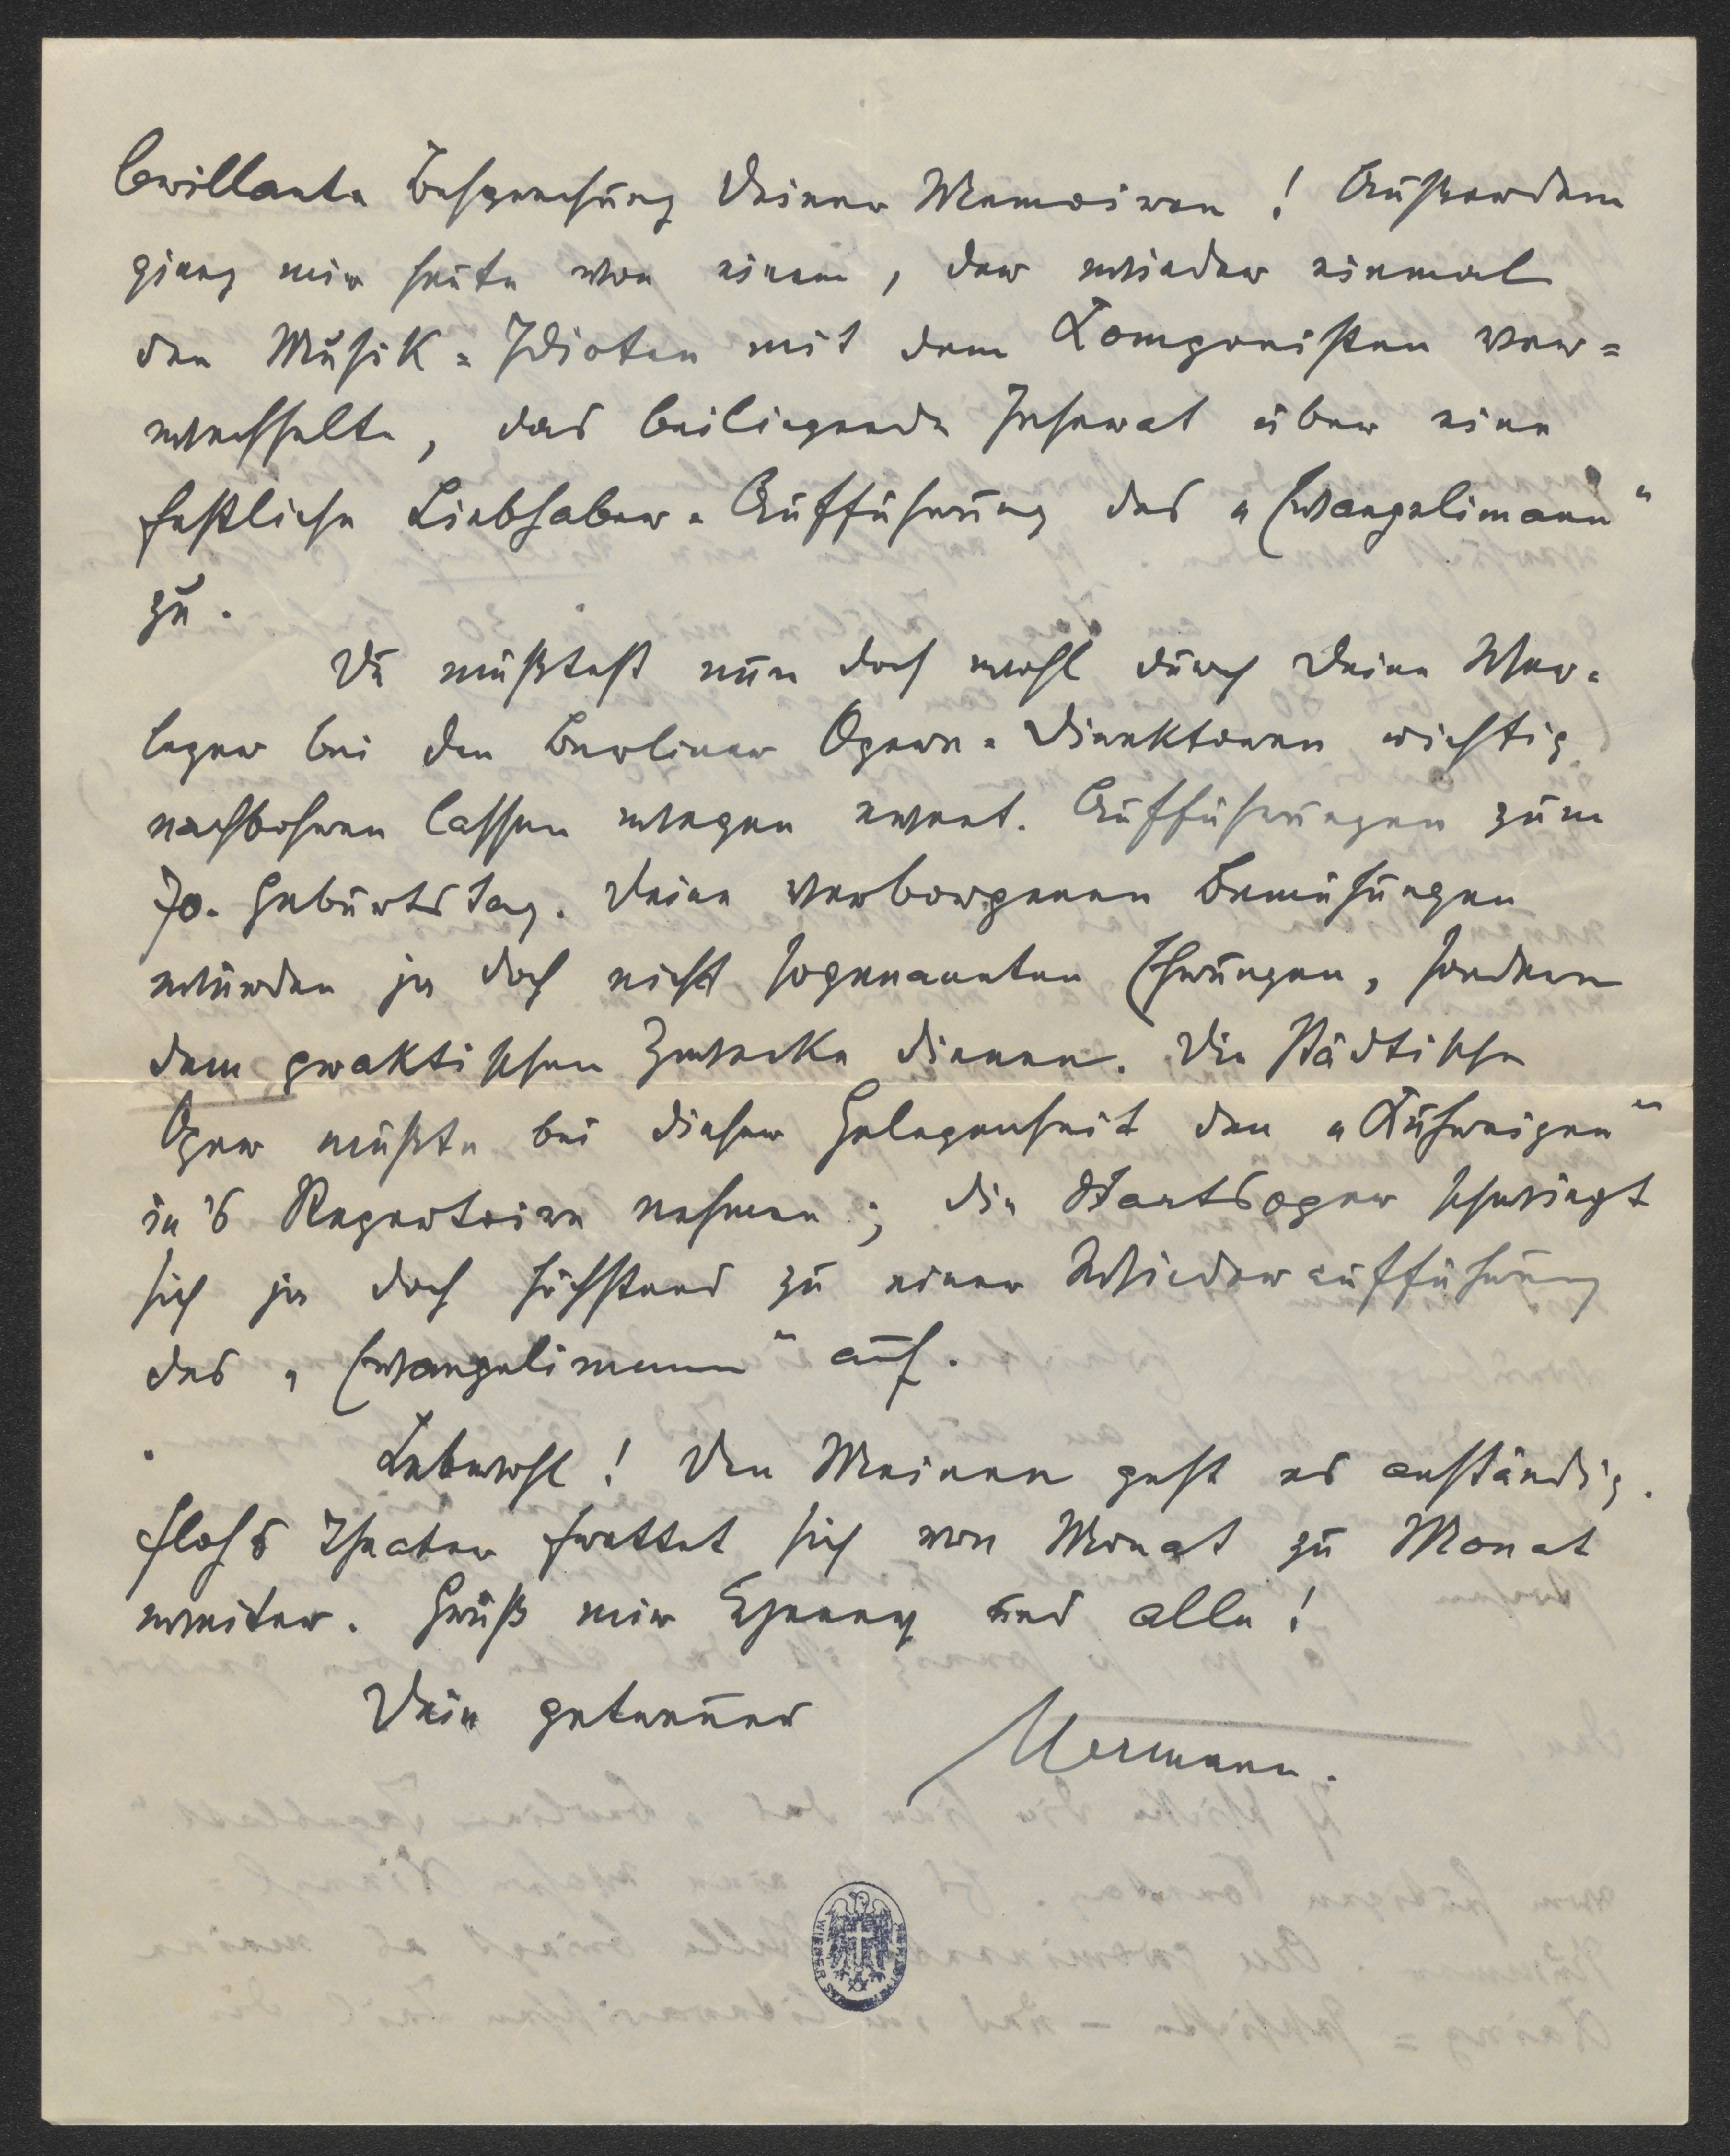 brillante Besprechung Deiner Memoiren! Außerdem
gieng mir heute von einem, der wieder einmal
den Musik=Idioten mit dem Komponisten ver=
wechselte, das beiliegende Inserat über eine
festliche Liebhaber-Aufführung des „Evangelimann“
zu.
Du müßtest nun doch wohl durch Deine Ver-
leger bei den Berliner Opern-Direktoren richtig
nachbohren lassen wegen event. Aufführungen zum
70. Geburtstag. Deine verborgenen Bemühungen
würden ja doch nicht sogenannten Ehrungen, sondern
dem praktischen Zwecke dienen. Die Städtische
Oper müßte bei dieser Gelegenheit den „Kuhreigen“
in's Repertoire nehmen; die Staatsoper schwingt
sich ja doch höchstens zu einer Wiederaufführung
des „Evangelimann“ auf.
Lebewohl! Den Meinen geht es anständig.
Flohs Theater frettet sich von Monat zu Monat
weiter. Grüß mir Henny und alle!
Dein getreuer
Hermann.
WIENER